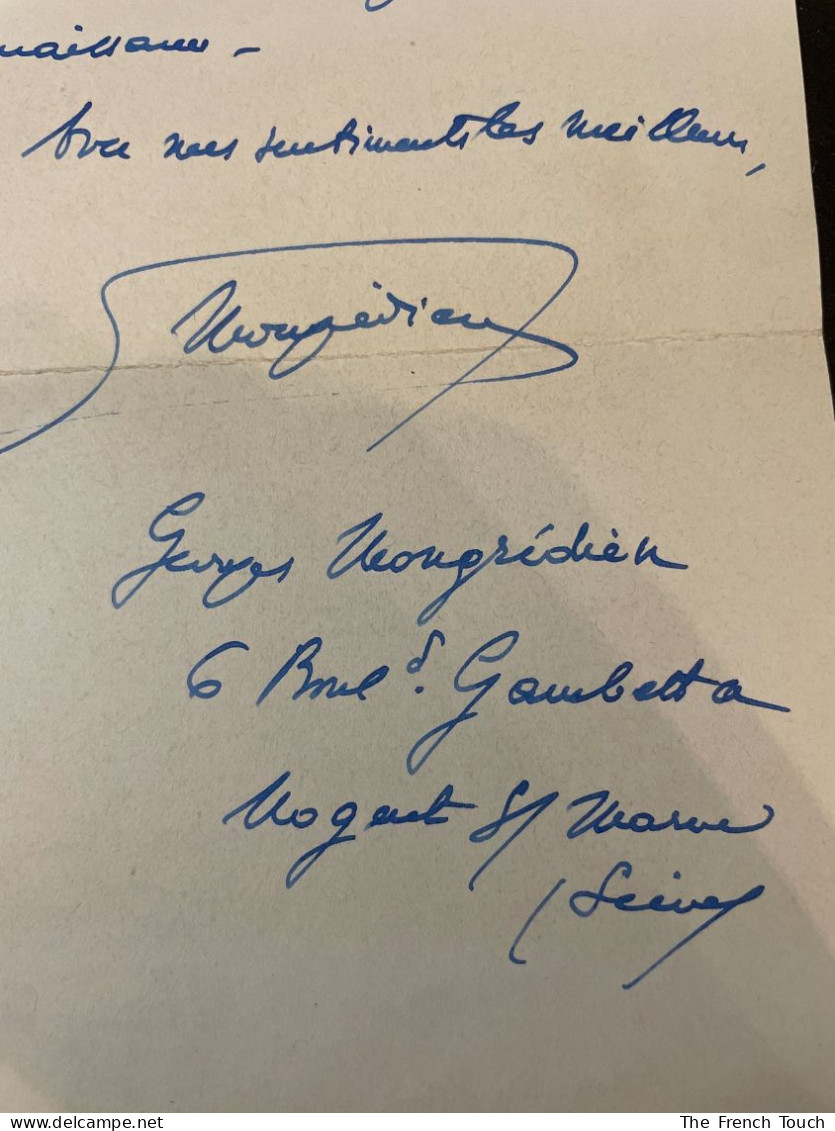 naissance -
Avec mes sentiments les meilleurs,
Mongrédien
Georges Mongrédien
6 Boul d. Gambetta
Nogent s/ Marne
(Seine)
delcampe.net
The French Touch